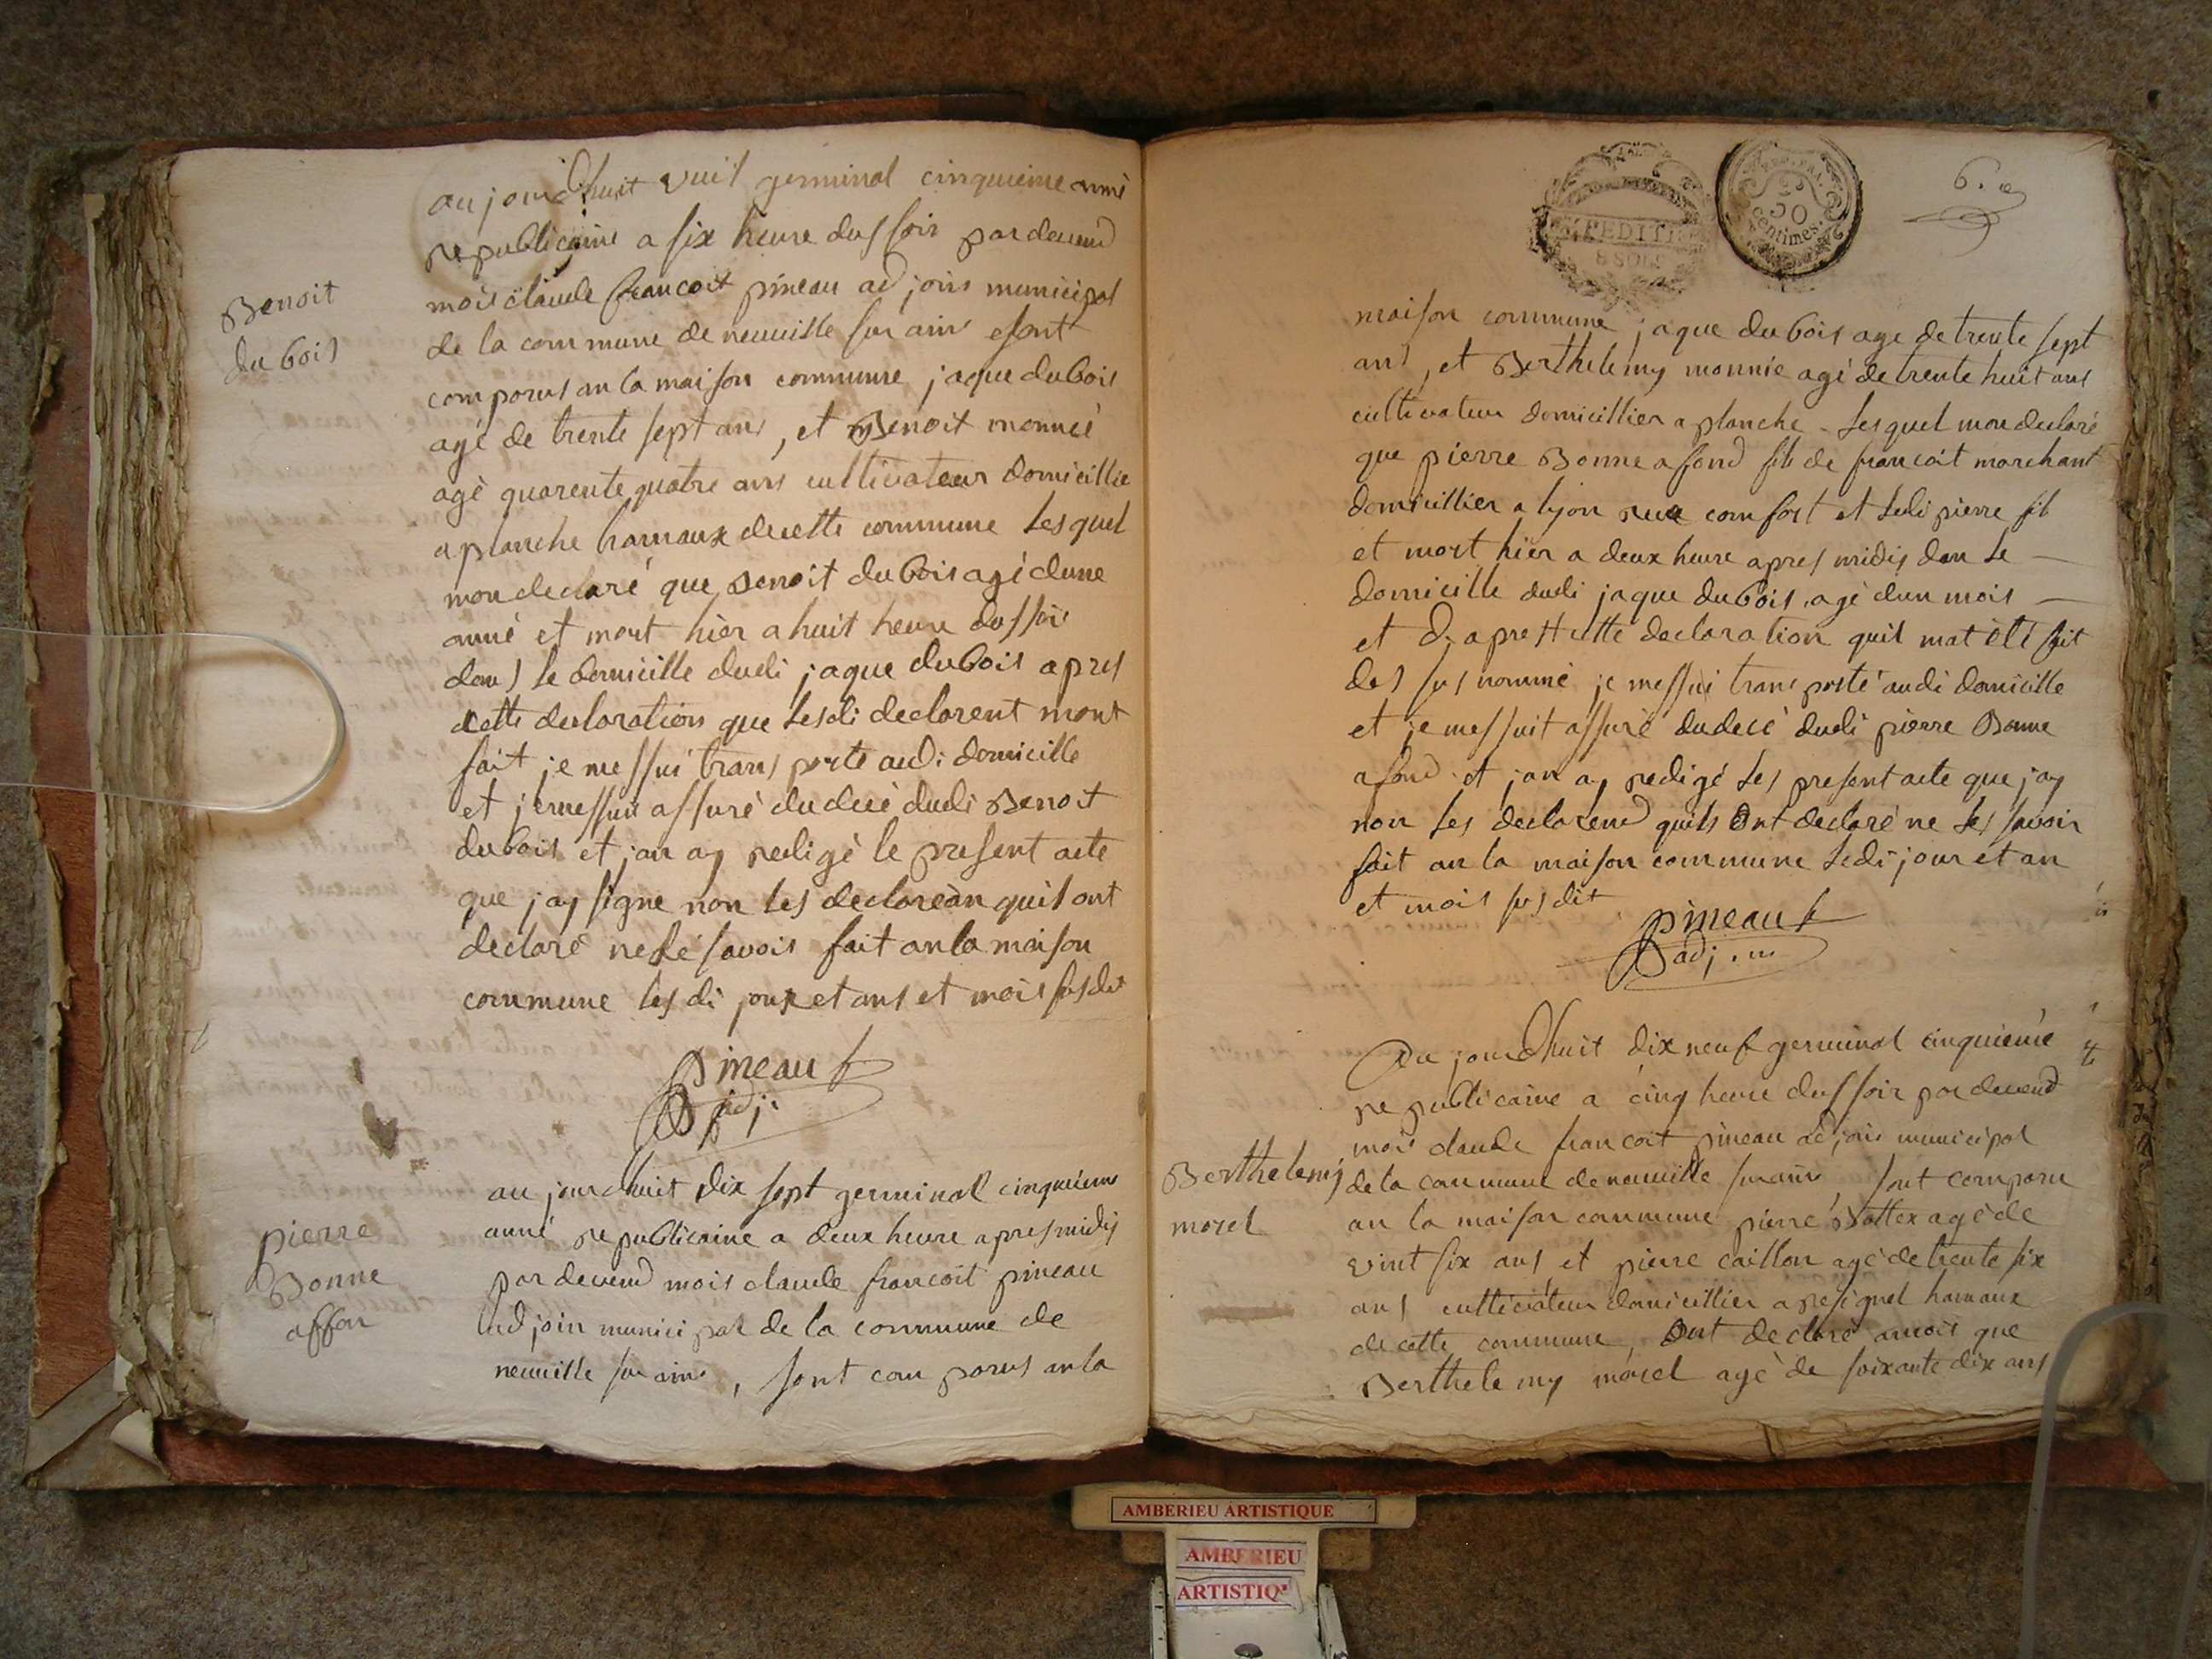 Benoit
du bois
aujourdhuit vuit germinal cinquieme anné
republicaine a six heure dussoir par devend
mois claude francoit pineau adjoin municipal
de la commune de neuville sur ain esont
comparus an la maison commune jaque dubois
agé de trente sept ans, et Benoit monnié
agé quarente quatre ans cultivateur domicillie
a planche hamaux decette commune Lesquel
mon declaré que Benoit dubois agé dune
anné et mort hier a huit heure dussoir
dans le domicille dudi jaque dubois apres
cette declaration que lesdi declarent mont
fait je messui transporté audi domicille
et jemessuit assuré dudecé dudi Benoit
dubois et jan ay redigé le present acte
que jay signe non les declarean quils ont
declaré nelé savois fait an la maison
commune lesdi jour et ans et mois susdit
pineau
adj.
pierre
Bonne
affon
au jourdhuit dix sept germinal cinquieme
anné republicaine a deux heure apres midis
par devend mois claude francoit pineau
adjoin municipal de la commune de
neuville sur ain, sont comparus an la
EXPEDITI
8 SOLS
50
centimes
6.
maison commune jaque dubois age de trente sept
ans, et Berthelemy monnie agé de trente huit ans
cultivateur domicillier a planche Lesquel mon declaré
que pierre Bonne afond fils de francoit marchant
domicillier a lyon rue comfort et ledi pierre fil
et mort hier a deux heure apres midis dan le
domicille dudi jaque dubois agé dun mois
et d, apres cette declaration quil mat été fait
des susnommé je messui transporté audi domicille
et je messuit assuré dudecé dudi pierre Bonne
afond et jan ay redigé les present acte que jay
non les declarend quils ont declaré ne les savoir
fait an la maison commune ledi jour et an
et mois susdit
pineau
adj. m
Berthelemy
morel
Au jourdhuit dix neuf germinal cinquiéme
republicaine a cinq heure dussoir par devend
mois claude francoit pineau adjoin municipal
de la commune de neuville sur ain, sont comparu
an la maison commune pierre Bottex agé de
vint six ans et pierre caillon agé de trente six
ans cultivateur domicillier a resignel hamaux
de cette commune, ont declaré amois que
Berthelemy morel agé de soixante dix ans
AMBERIEU ARTISTIQUE
AMBERIEU
ARTISTIQ